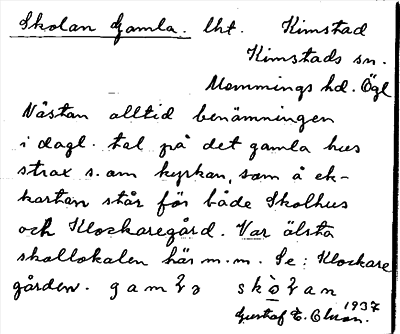 Skolan Gamla. lht. Kimstad
Kimstads sn.
Memmings hd. Ögl
Nästan alltid benämningen
i dagl. tal på det gamla hus
strax s. om kyrkan, som å ek-
kartan står för både Skolhus
och Klockaregård. Var älsta
skollokalen här m.m. Se: Klockare
gården. gamɫə skòɫan
1937
Gustaf E. Olson.